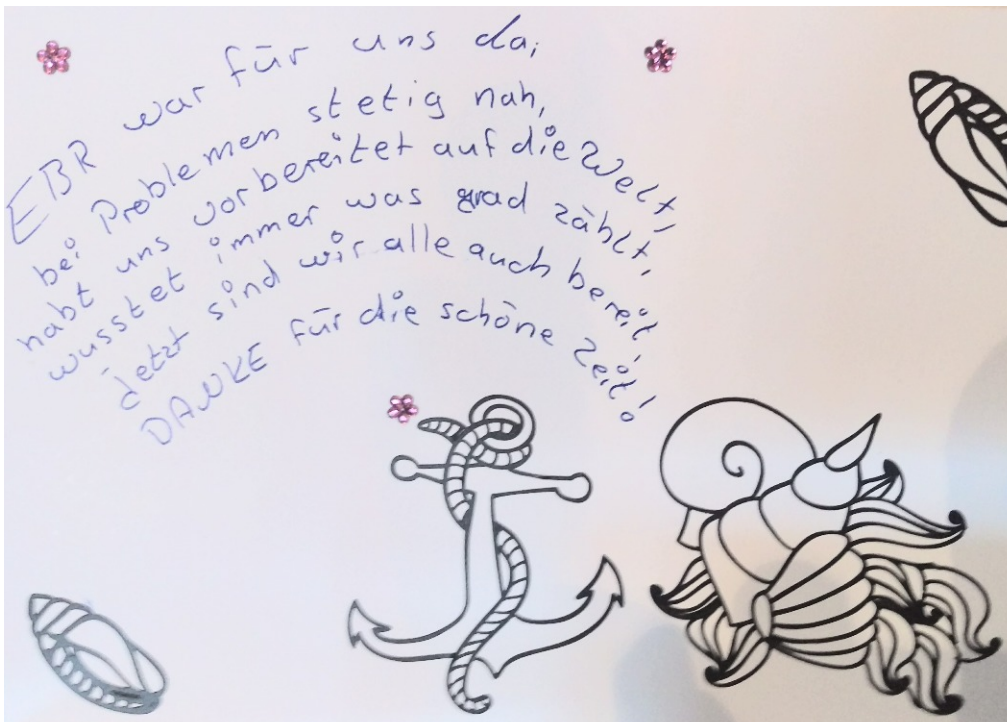 EBR war für uns da,
bei Problemen stetig nah,
habt uns vorbereitet auf die Welt,
wusstet immer was grad zählt,
Jetzt sind wir alle auch bereit,
DANKE für die schöne Zeit!